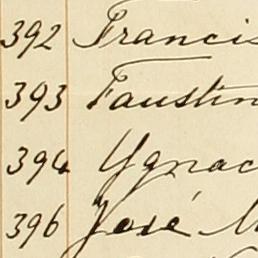 392 Francis
393 Faustin
394 Ygnac
396 José M